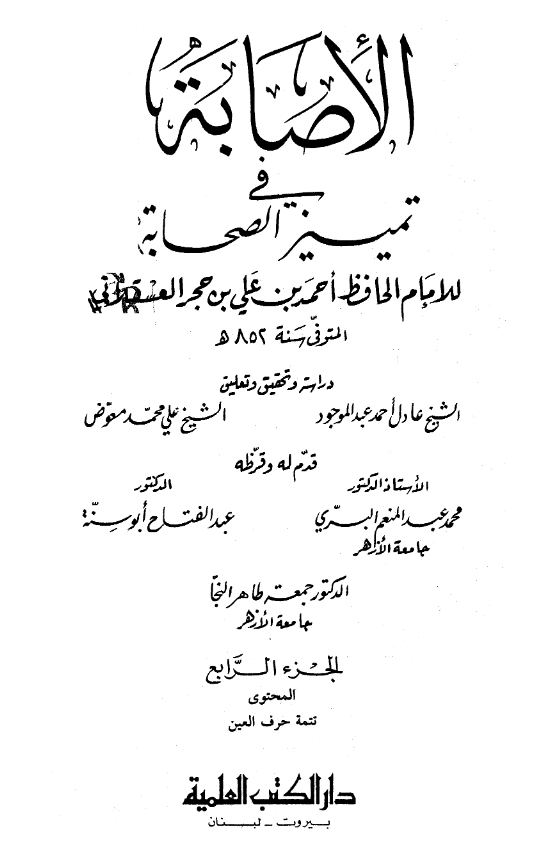 الأصابة
في
تمييز الصحابة
للامام الحافظ أحمد بن علي بن حجر العسقلاني
المتوفى سنة ٨٥٢ ه
دراسة وتحقيق وتعليق
الشيخ عادل أحمد عبد الموجود الشيخ علي محمد معوض
قدم له وقرظه
الأستاذ الدكتور الدكتور
محمد عبد المنعم البري عبد الفتاح أبو سنة
جامعة الأزهر
الدكتور جمعة طاهر النجار
جامعة الأزهر
الجزء الرابع
المحتوى
تتمة حرف العين
دار الكتب العلمية
بيروت - لبنان